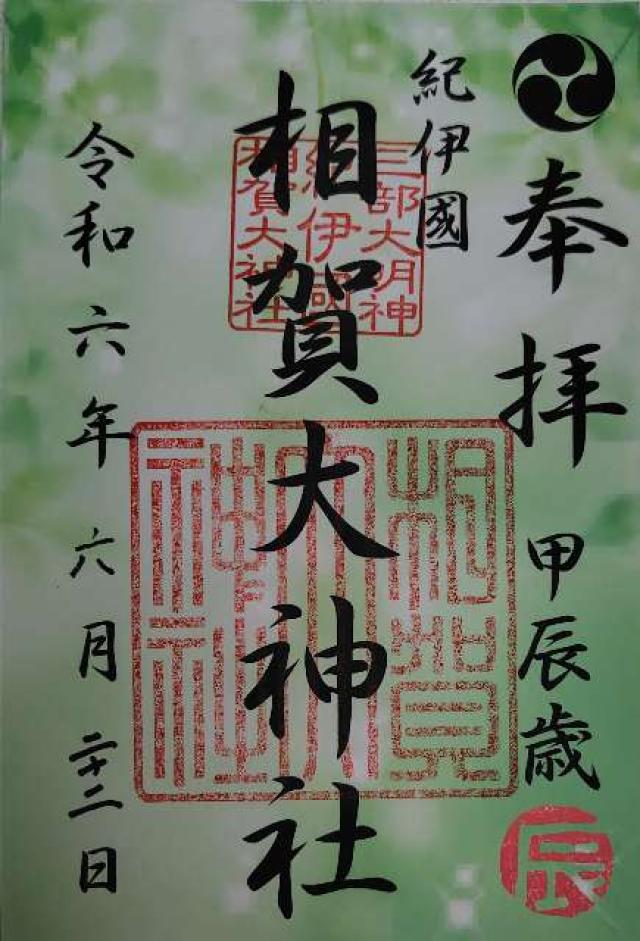 奉拝
甲辰歳
辰
紀伊國
相賀大神社
三部大明神
紀伊國
相賀大神社
相賀
大
神社
令和六年六月二十二日